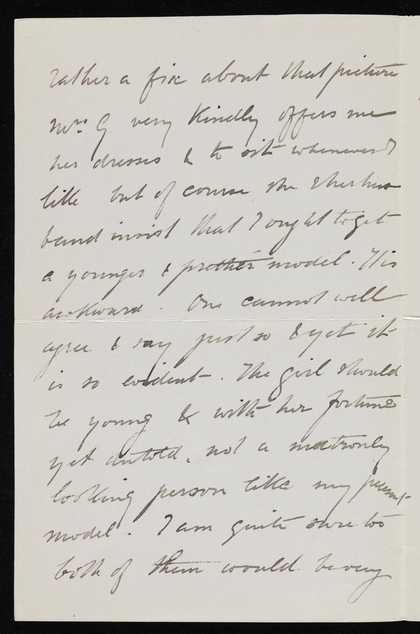 rather a fix about that picture
Mrs. G very kindly offers me
her dresses & to sit whenever I
like but of course she & her hus-
band insist that I ought to get
a younger & prettier model. It is
awkward. One cannot well
agree & say just so & yet it
is so evident. The girl should
be young & with her fortune
yet untold, not a matronly
looking person like my present
model. I am quite sure too
both of them would be very